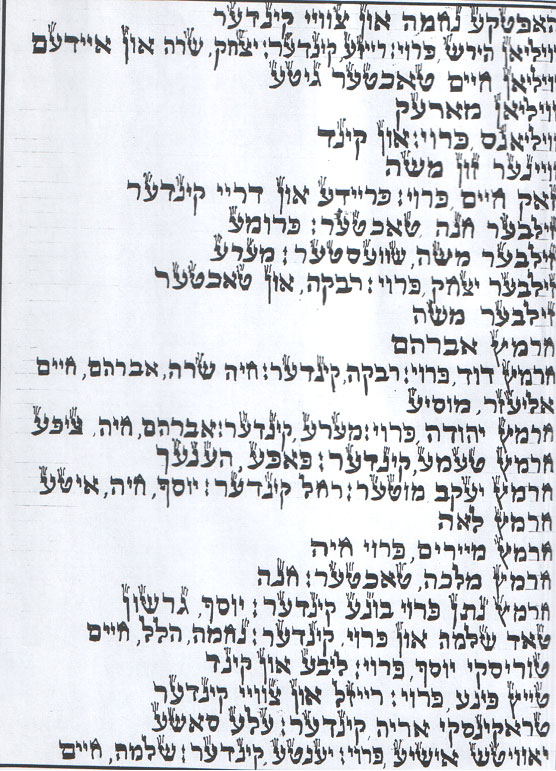 נחמה און צוויי קינדער
וויליאן הירש, פרוי: רייזע, קינדער: יצחק, שרה און איידעם
וויליאן חיים טאכטער גיטע
וויליאן מארעק
וויליאנס, פרוי: און קינד
וויינער זון משה
זאק חיים, פרוי: פריידע און דריי קינדער
זילבער חנה טאכטער: פרומע
זילבער משה, שוועסטער: מערע
זילבער יצחק, פרוי: רבקה, און טאכטער
זילבער משה
חרמץ אברהם
חרמץ דוד, פרוי: רבקה, קינדער: חיה שרה, אברהם, חיים
אליעזר, מוסיע
חרמץ יהודה, פרוי: מערע, קינדער: אברהם, חיה, ציפע
חרמץ טעמע, קינדער: פאפע, העניך
חרמץ יעקב מוטער: רחל קינדער: יוסף, חיה, איטע
חרמץ לאה
חרמץ מיירים, פרוי חיה
חרמץ מלכה, טאכטער: חנה
חרמץ נתן פרוי בונע קינדער: יוסף, גרשון
טאד שלמה און פרוי, קינדער: נחמה, הלל, חיים
טוריסקי יוסף, פרוי: ליבע און קינד
טייץ פינע, פרוי: רייזל און צווייי קינדער
טראקינסקי אריה, קינדער: עלע סאשע
יאוויטש אישיע, פרוי: יענטע, קינדער: שלמה, חיים